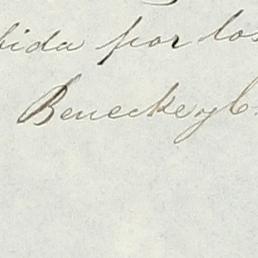 bida por los
Beneckey C